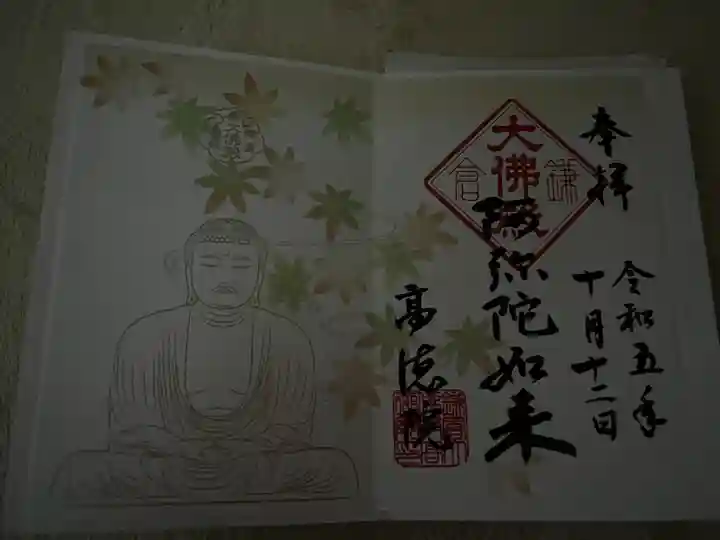 奉拝
令和五年
十月十二日
大佛殿
鎌倉
弥陀如来
高徳院